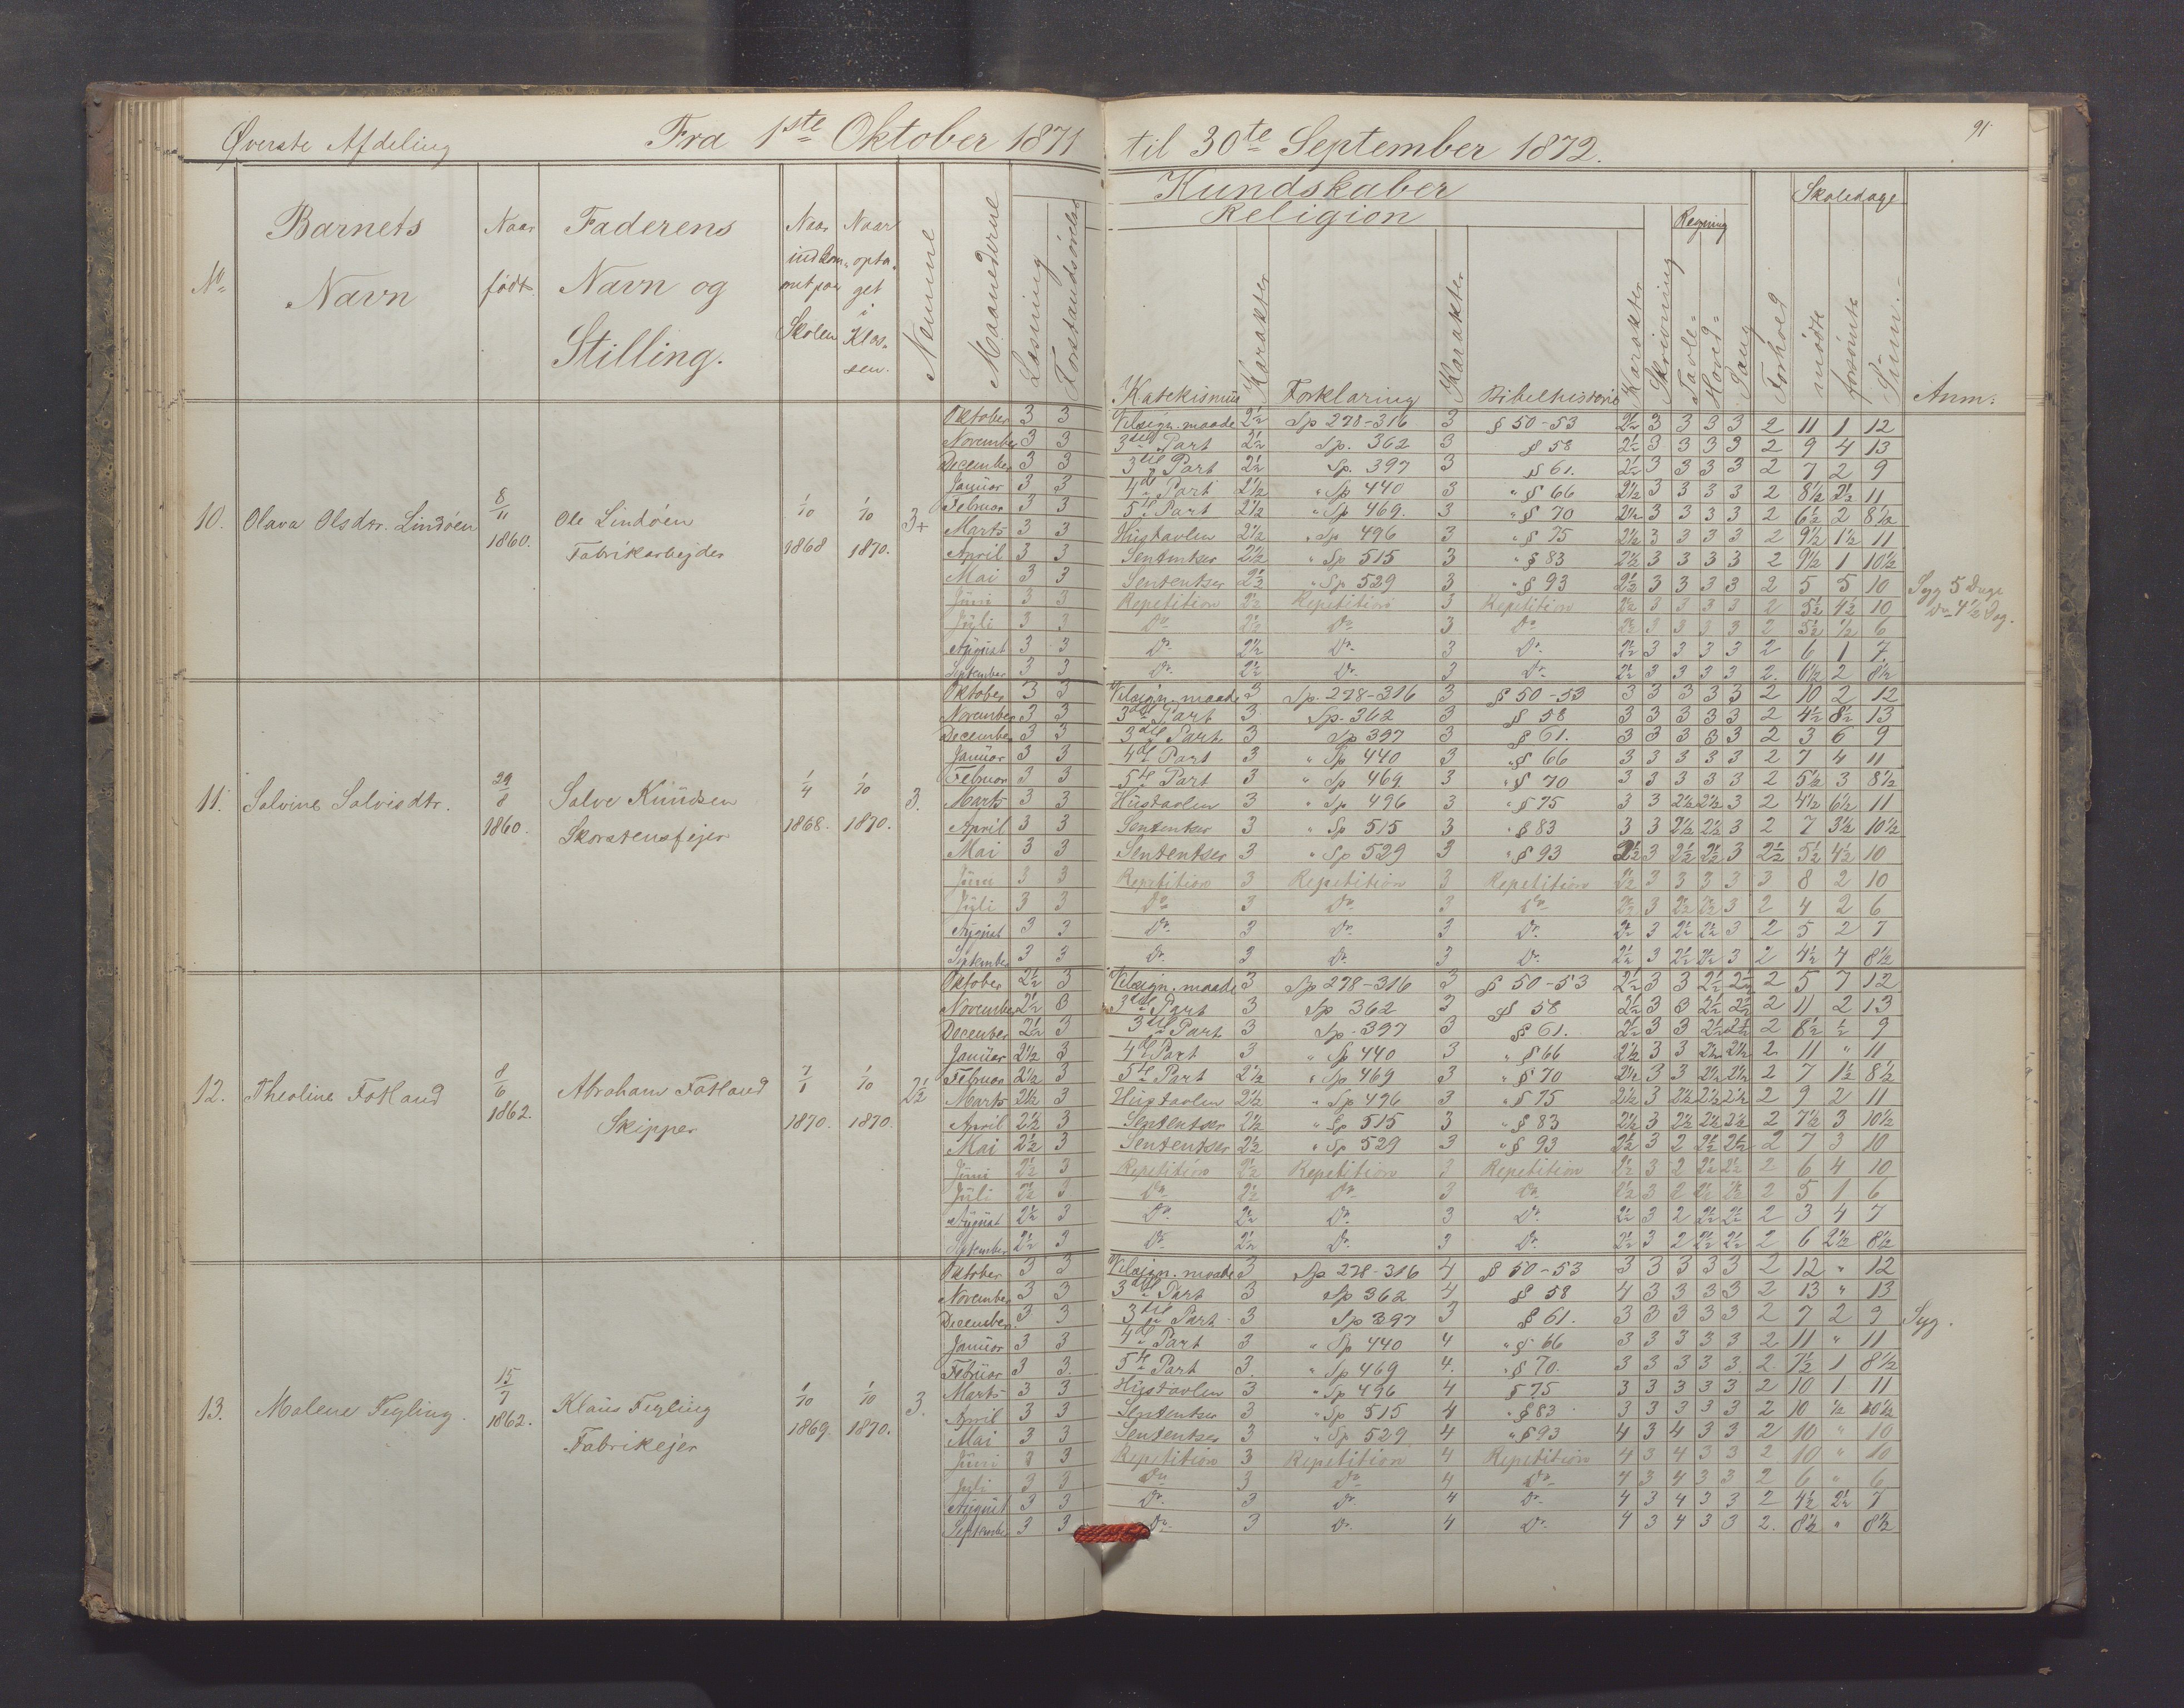 Øverste Afdeling Fra 1ste Oktober 1871 til 30te September 1872. 91
Kundskaber Skoledage
Religion Regning
No Barnets Navn Naar født. Faderens Navn og Stilling. Naar indkommet paa Skolen Naar optaget i Klassen. Nemme Maanederne Læsning Forstandsøvelse Katekismus Karakter Forklaring Karakter Bibelhistorie Karakter Skrivning Tavle- Hoved- Sang Forhold mødte forsømte Sum. Anm:
10. Olava Olsdtr. Lindøen 8/11 1860. Ole Lindøen Fabrikarbejder 1/10 1868 1/10 1870. 3+
Oktober 3 3 Velsign. maade 2½ Sp 278-316 3 § 50-53 2½ 3 3 3 3 2 11 1 12
November 3 3 3die Part 2½ Sp. 362 3 § 58 2½ 3 3 3 3 2 9 4 13
December 3 3 3die Part 2½ Sp. 397 3 § 61. 2½ 3 3 3 3 2 7 2 9
Januar 3 3 4de Part 2½ " Sp 440 3 " § 66 2½ 3 3 3 3 2 8½ 2½ 11
Februar 3 3 5te Part 2½ " Sp 469. 3 " § 70 2½ 3 3 3 3 2 6½ 2 8½
Marts 3 3 Hustavlen 2½ " Sp 496 3 " § 75 2½ 3 3 3 3 2 9½ 1½ 11
April 3 3 Sententser 2½ " Sp 515 3 " § 83 2½ 3 3 3 3 2 9½ 1 10½
Mai 3 3 Sententser 2½ " Sp 529 3 " § 93 2½ 3 3 3 3 2 5 5 10 Syg 5 Dage
Juni 3 3 Repetition 2½ Repetition 3 Repetition 2½ 3 3 3 3 2 5½ 4½ 10 Do 4½ Dag.
Juli 3 3 Do 2½ Do 3 Do 2½ 3 3 3 3 2 5½ ½ 6
August 3 3 Do 2½ Do 3 Do 2½ 3 3 3 3 2 6 1 7.
September 3 3 Do. 2½ Do. 3 Do. 2½ 3 3 3 3 2. 6½ 2 8½
11. Salvine Salvesdtr. 29/8 1860. Salve Knudsen Skorstensfejer 1/4 1868. 1/10 1870. 3.
Oktober 3 3 Velsign. maade 3 Sp. 278-316 3 § 50-53 3 3 3 3 3 2 10 2 12
November 3 3 3die Part 3 Sp. 362 3 § 58 3 3 3 3 3 2 4½ 8½ 13
December 3 3 3die Part 3 Sp 397 3 § 61. 3 3 3 3 3 2 3 6 9
Januar 3 3 4de Part 3 " Sp 440 3 " § 66 3 3 3 3 3 2 7 4 11
Februar 3 3 5te Part 3 " Sp 469 3 " § 70 3 3 3 3 3 2 5½ 3 8½
Marts 3 3 Hustavlen 3 " Sp 496 3 " § 75 3 3 2½ 2½ 3 2 4½ 6½ 11
April 3 3 Sententser 3 " Sp 515 3 " § 83 3 3 2½ 2½ 3 2 7 3½ 10½
Mai 3 3 Sententser 3 " Sp 529 3 " § 93 2½ 3 2½ 2½ 3 2½ 5½ 4½ 10
Juni 3 3 Repetition 3 Repetition 3 Repetition 2½ 3 3 3 3 3 8 2 10
Juli 3 3 Do 3 Do 3 Do 2½ 3 2½ 2½ 3 2 4 2 6
August 3 3 Do. 3 Do. 3 Do. 2½ 3 2½ 2½ 3 2 5 2 7
September 3 3 Do. 3 Do. 3 Do. 2½ 3 2½ 2½ 3 2 4½ 4 8½
12. Theoline Fotland 8/6 1862. Abraham Fotland Skipper 1870. 1/10 1870. 2½
Oktober 2½ 3 Velsign. maade 3 Sp 278-316 3 § 50-53 2½ 3 3 2½ 2½ 2 5 7 12
November 2½ 3 3die Part 3 Sp 362 3 § 58 2½ 3 3 2½ 2½ 2 11 2 13
December 2½ 3 3die Part 3 Sp. 397 3 § 61. 2½ 3 3 2½ 2½ 2 8½ ½ 9
Januar 2½ 3 4de Part 3 " Sp 440 3 " § 66 2½ 3 3 2½ 2½ 2. 11 " 11
Februar 2½ 3 5te Part 2½ " Sp 469 3 " § 70 2½ 3 3 2½ 2½ 2 7 1½ 8½
Marts 2½ 3 Hustavlen 2½ " Sp 496 3 " § 75 2½ 3 2½ 2½ 2½ 2 9 2 11
April 2½ 3 Sententser 2½ " Sp 515 3 " § 83 2½ 3 2½ 2½ 2½ 2 7½ 3 10½
Mai 2½ 3 Sententser 2½ " Sp 529 3 " § 93 2½ 3 2 2½ 2½ 2 7 3 10
Juni 2½ 3 Repetition 2½ Repetition 3 Repetition 2½ 3 2 2½ 2½ 2 6 4 10
Juli 2½ 3 Do 2½ Do 3 Do 2½ 3 2 2½ 2½ 2 5 1 6
August 2½ 3 Do. 2½ Do. 3 Do. 2½ 3 2 2½ 2½ 2 3 4 7
September 2½ 3 Do. 2½ Do. 3 Do. 2½ 3 2 2½ 2½ 2 6 2½ 8½
13. Malene Tegling. 15/7 1862. Klaus Tegling Fabrikejer 1/10 1869. 1/10 1870. 3.
Oktober 3 3 Velsign. maade 3 Sp 278-316 4 § 50-53 3 3 3 3 3 2 12 " 12
November 3 3 3die Part 3 Sp 362 4 § 58 4 3 3 3 3 2 13 " 13
December. 3 3 3die Part 3 Sp 397 3 § 61. 3 3 3 3 3 2 7 2 9 Syg.
Januar 3 3 4de Part 3 " Sp 440 4 " § 66 3 3 3 3 3 2 11 " 11
Februar 3 3. 5te Part 3. " Sp 469 4. " § 70. 3 3 3 3 3. 2. 7½ 1 8½
Marts 3 3 Hustavlen 3 " Sp 496 4 § 75 3 3 3 3 3 2 10 1 11
April 3 3 Sententser 3 " Sp 515 4 " § 83 3 3 3 3 3 2 10 ½ 10½
Mai 3 3 Sententser 3 " Sp 529 4 " § 93 4 3 4 3 3 2 10 " 10
Juni 3 3 Repetition 3 Repetition 4 Repetition 4 3 4 3 3 2 10 " 10
Juli 3 3 Do 3 Do 4 Do 4 3 4 3 3 2 6 " 6
August 3 3 Do. 3 Do. 4 Do. 4 3 4 3 3 2 4½ 2½ 7
September 3 3 Do. 3 Do. 4 Do. 4 3 4 3 3 2. 8½ " 8½